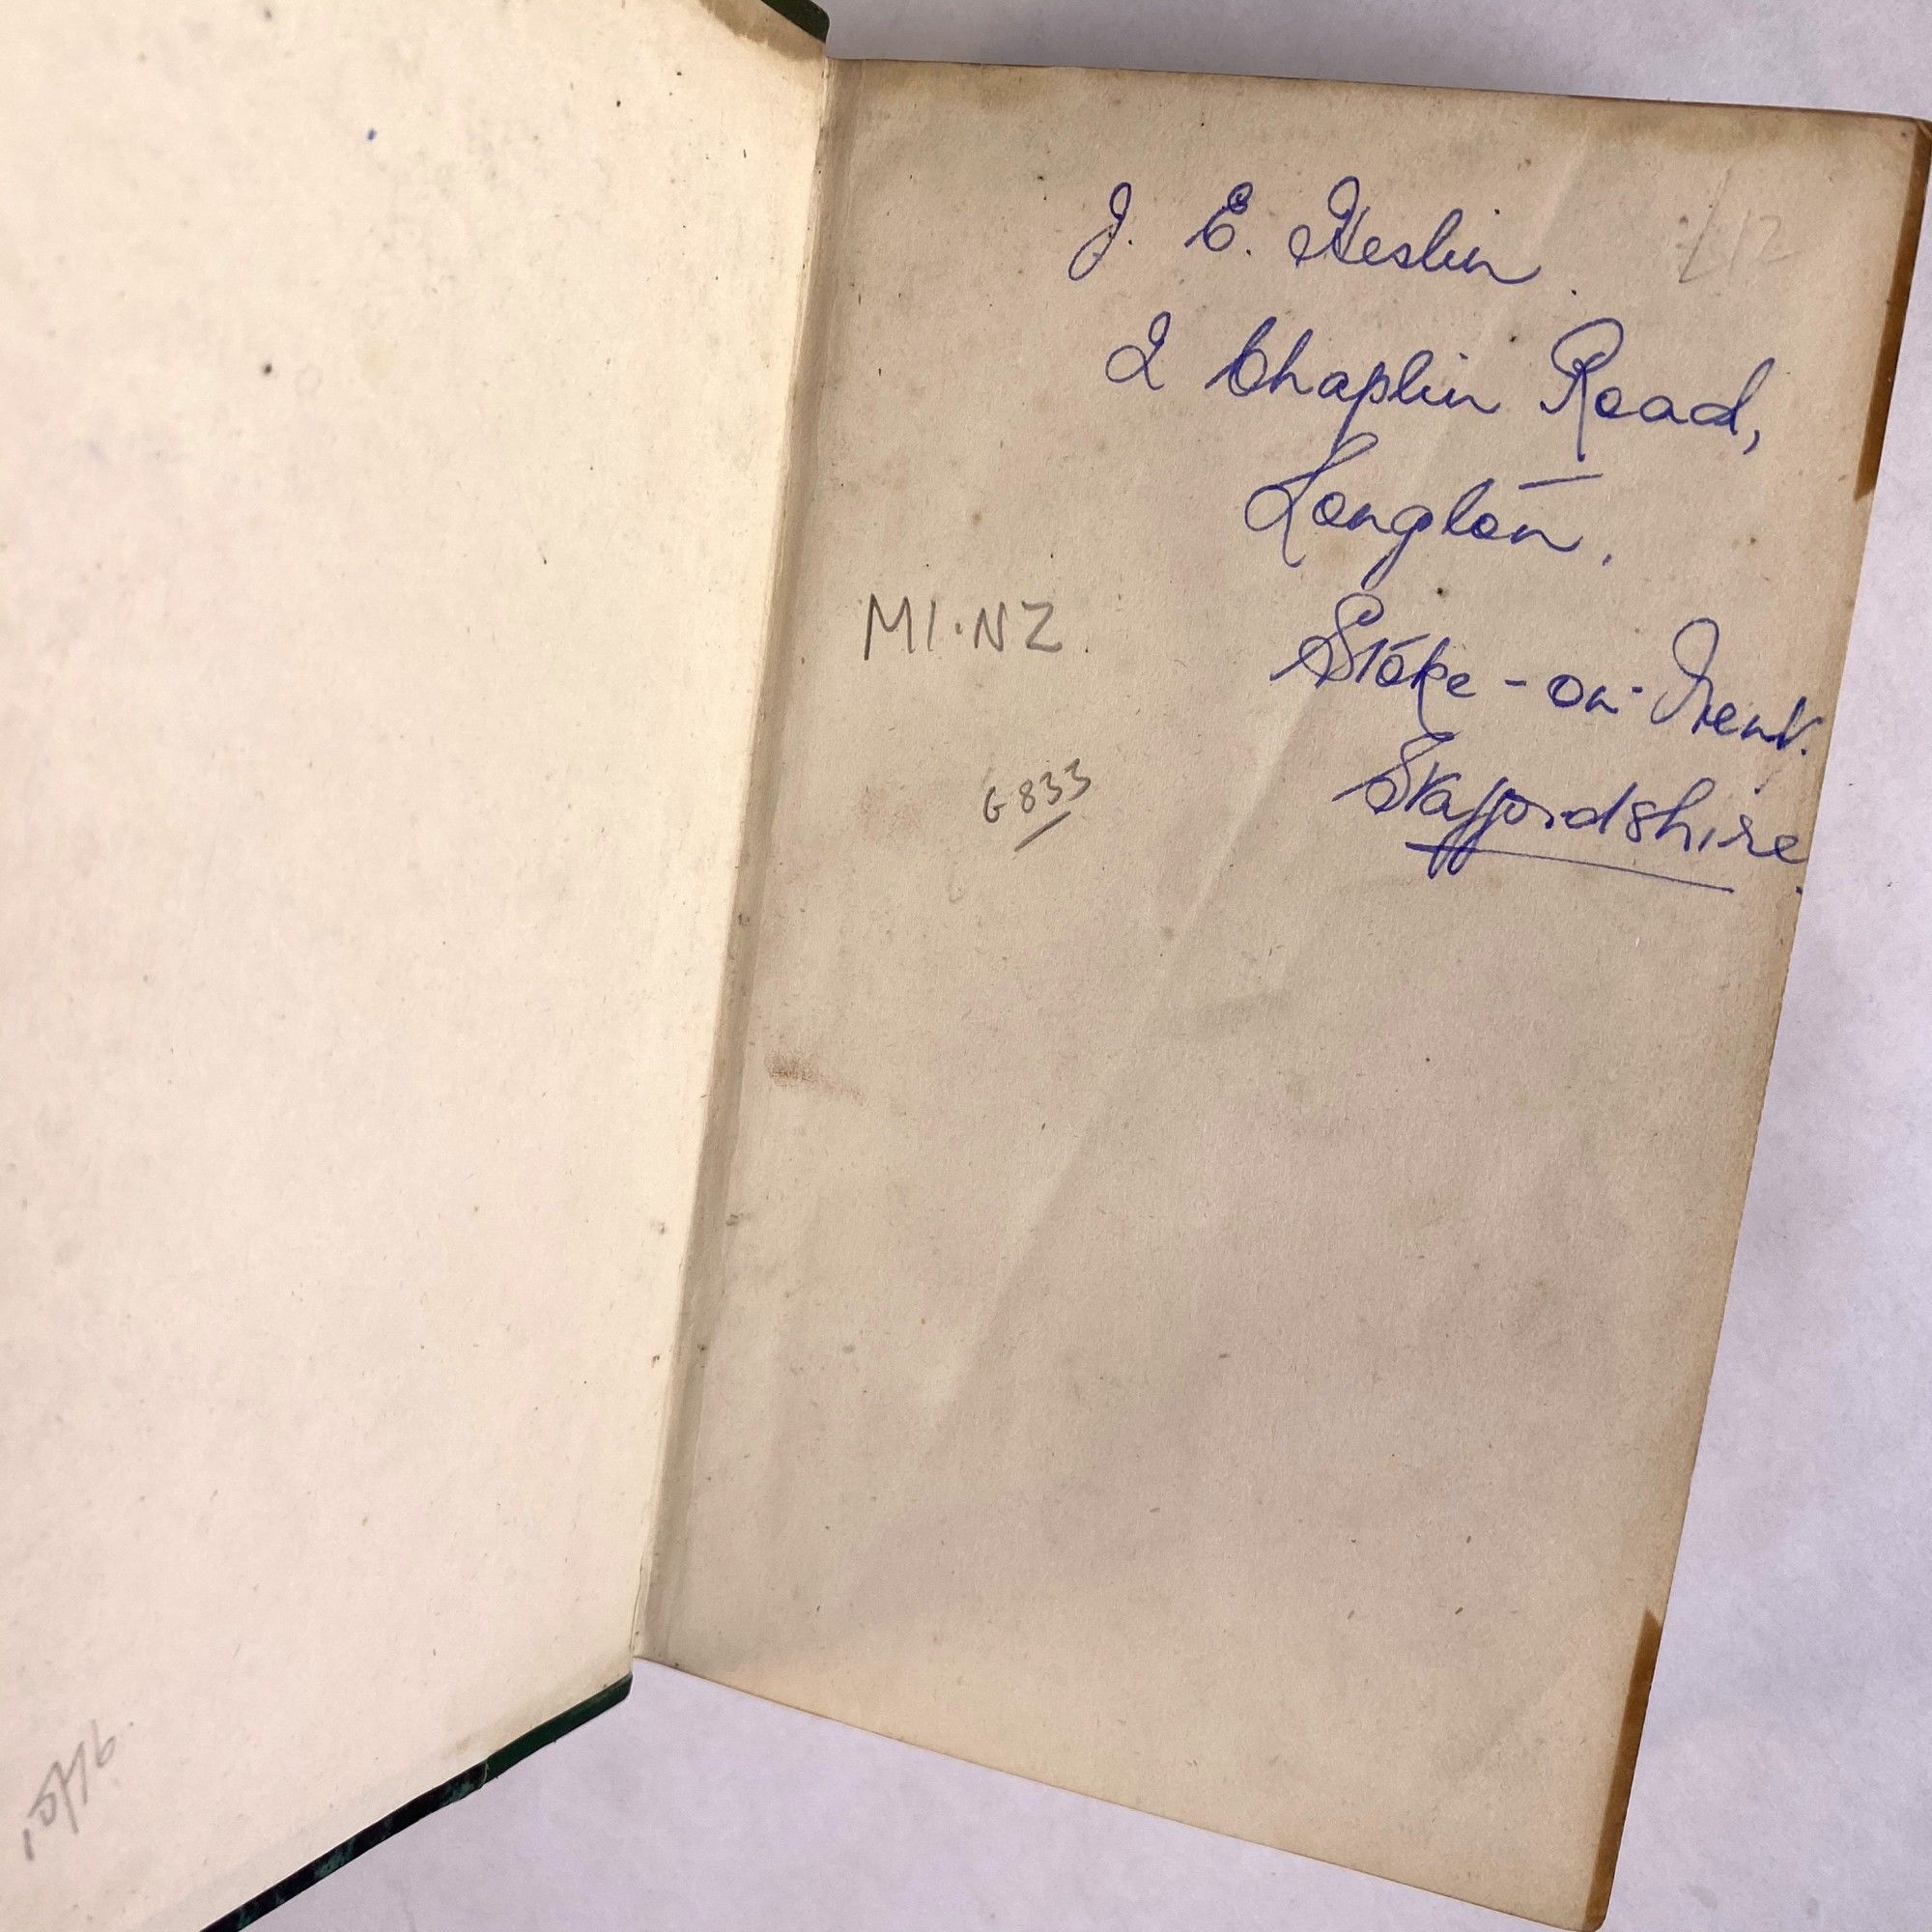 J. E. Heslin.
2 Chaplin Road,
Longton.
Stoke-on-Trent.
Staffordshire.
M1.NZ.
G833